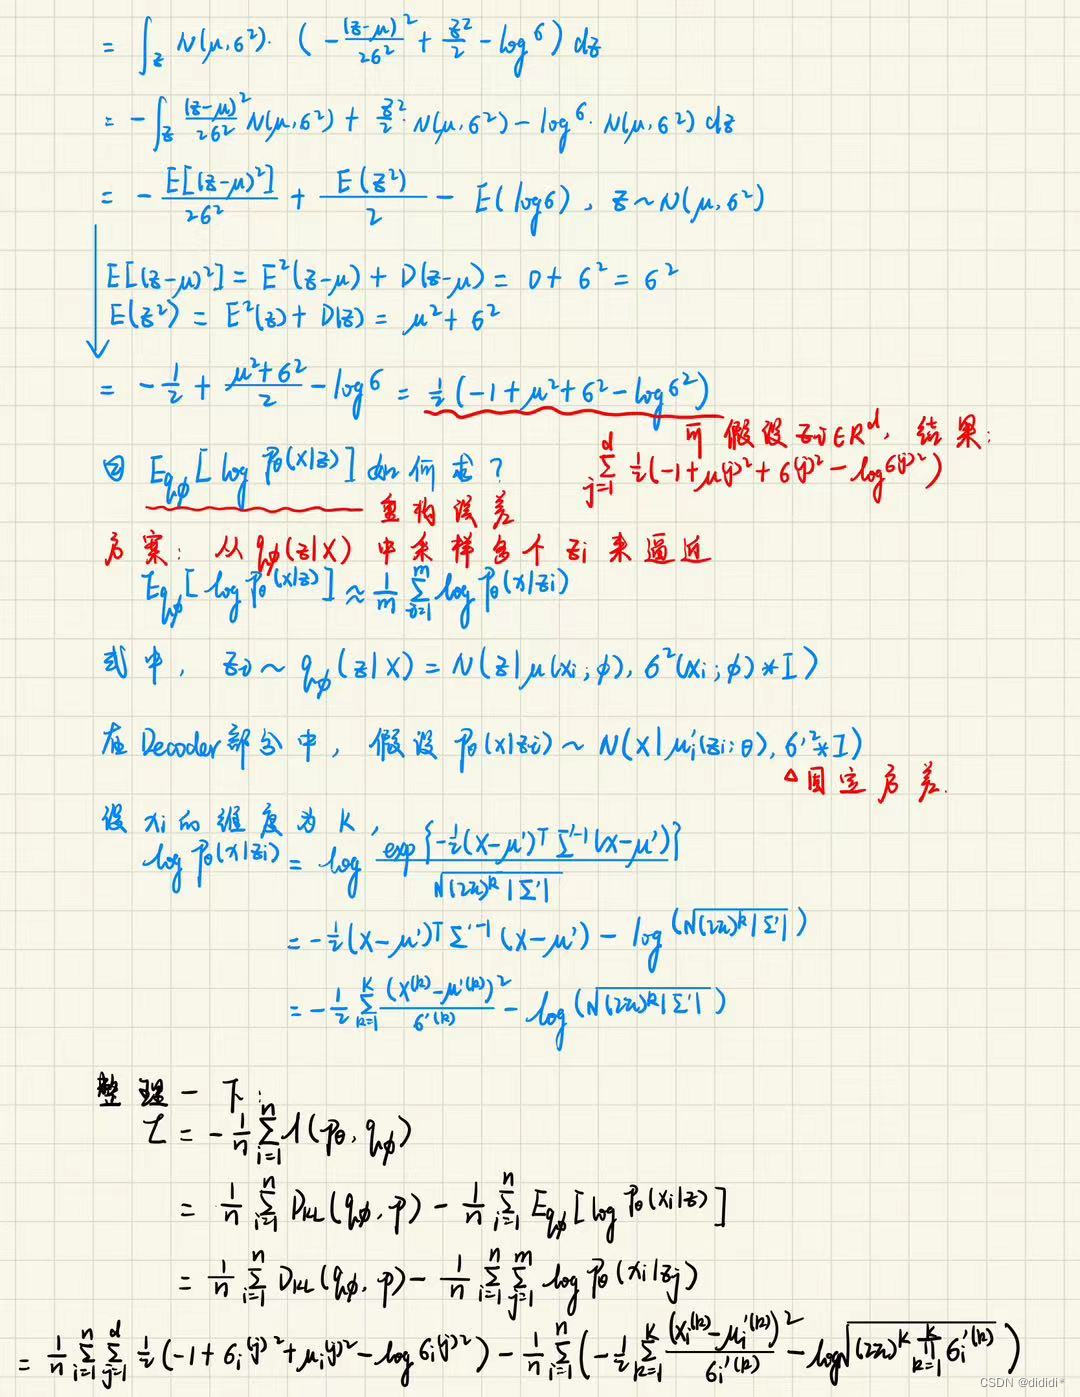 = ∫_z N(μ,σ²)·(-(z-μ)²/2σ² + z²/2 - logσ) dz
= -∫_z (z-μ)²/2σ² N(μ,σ²) + z²/2·N(μ,σ²) - logσ·N(μ,σ²) dz
= -E[(z-μ)²]/2σ² + E(z²)/2 - E(logσ), z~N(μ,σ²)
E[(z-μ)²] = E²(z-μ) + D(z-μ) = 0 + σ² = σ²
E(z²) = E²(z) + D(z) = μ² + σ²
= -1/2 + (μ²+σ²)/2 - logσ = 1/2(-1+μ²+σ²-logσ²)
可假设zi∈R^d, 结果:
∑_{j=1}^{d} 1/2(-1+μ^(j)²+σ^(j)²-logσ^(j)²)
② E_{qφ}[log pθ(x|z)] 如何求?
重构误差
方案: 从qφ(z|x)中采样多个zi来逼近
E_{qφ}[log pθ(x|z)] ≈ 1/m ∑_{i=1}^{m} log pθ(x|zi)
式中, zi ~ qφ(z|x) = N(z|μ(xi;φ), σ²(xi;φ)*I)
在Decoder部分中, 假设 pθ(x|zi) ~ N(x|μi'(zi;θ), σ'²*I)
△固定方差.
设xi的维度为K,
log pθ(x|zi) = log exp{-1/2(x-μ')^T Σ'^-1(x-μ')}/√((2π)^k|Σ'|)
= -1/2(x-μ')^T Σ'^-1(x-μ') - log(√((2π)^k|Σ'|))
= -1/2 ∑_{k=1}^{K} (x^(k)-μ'^(k))²/σ'^(k) - log(√((2π)^k|Σ'|))
整理一下:
L = -1/n ∑_{i=1}^{n} l(pθ, qφ)
= 1/n ∑_{i=1}^{n} D_KL(qφ, p) - 1/n ∑_{i=1}^{n} E_{qφ}[log pθ(xi|z)]
= 1/n ∑_{i=1}^{n} D_KL(qφ, p) - 1/n ∑_{i=1}^{n} ∑_{j=1}^{m} log pθ(xi|zj)
= 1/n ∑_{i=1}^{n} ∑_{j=1}^{d} 1/2(-1+σi^(j)²+μi^(j)²-logσi^(j)²) - 1/n ∑_{i=1}^{n} (-1/2 ∑_{k=1}^{K} (xi^(k)-μi'^(k))²/σi'^(k) - log√((2π)^K ∏_{k=1}^{K} σi'^(k)))
CSDN @dididi*